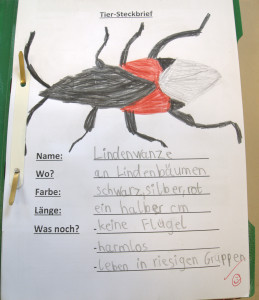 Tier-Steckbrief
Name: Lindenwanze
Wo? an Lindenbäumen
Farbe: schwarz, silber, rot
Länge: ein halber cm
Was noch? -keine Flügel
-harmlos
-leben in riesigen Gruppen